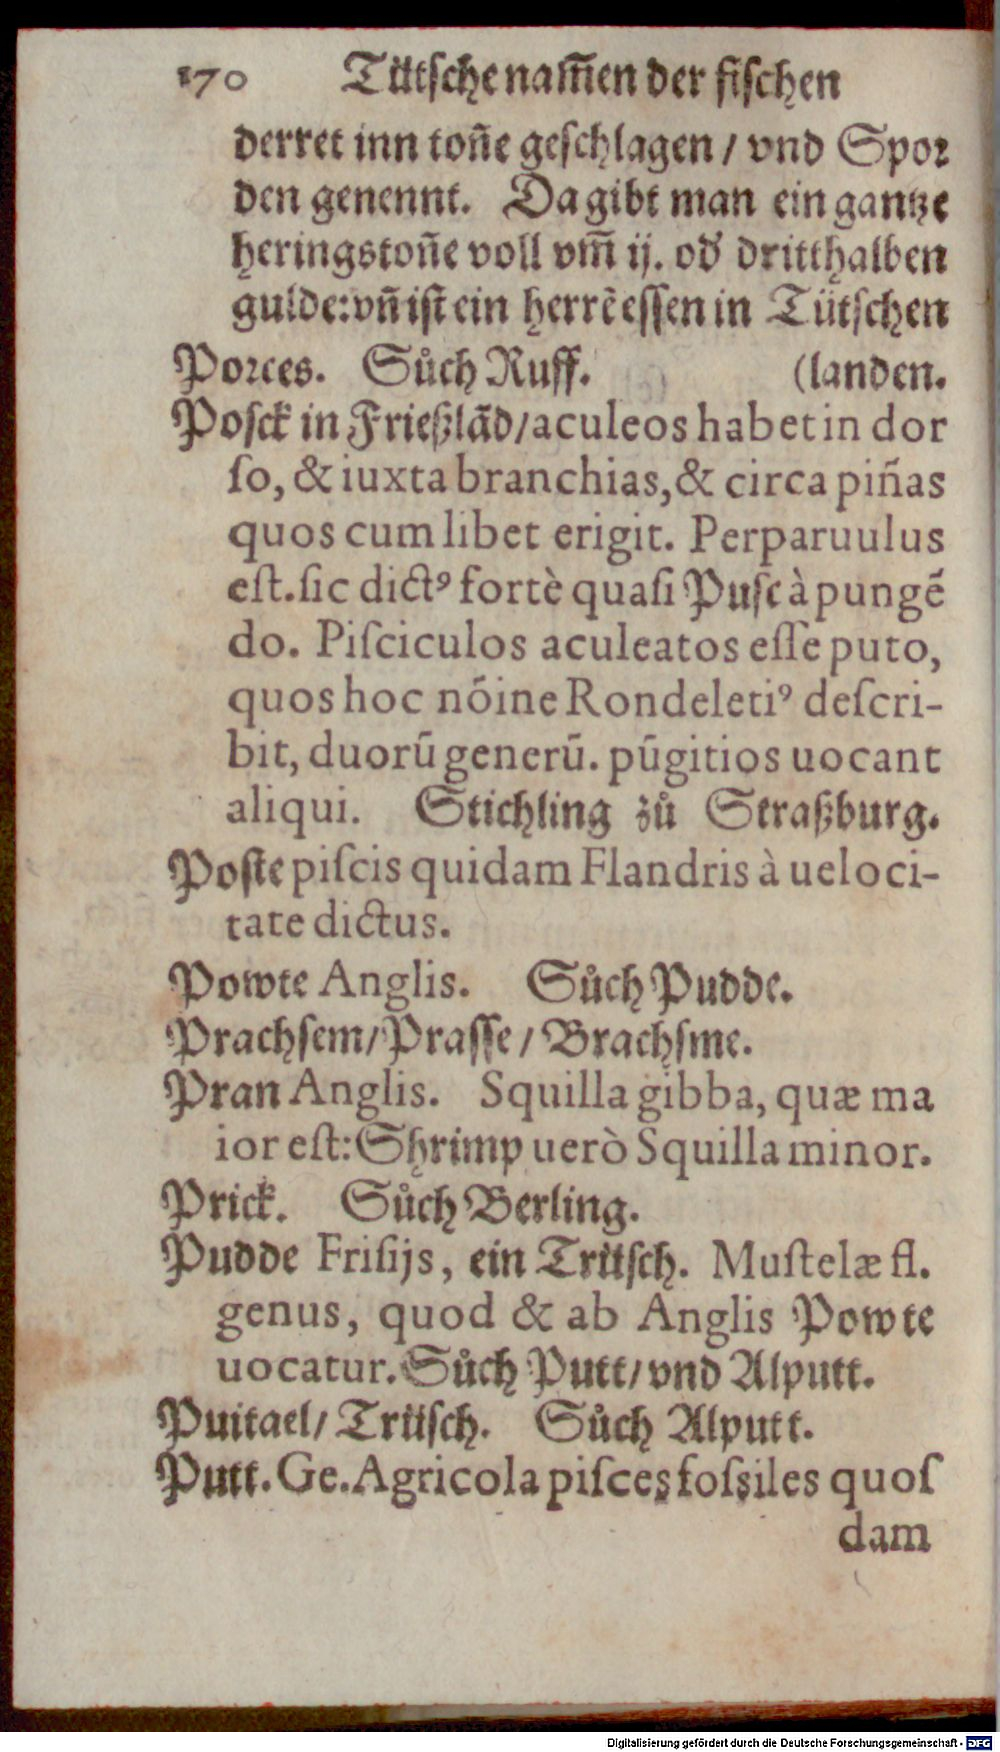 170 Tütsche nam̃en der fischen
derret inn toñe geschlagen / vnd Spor
den genennt. Da gibt man ein gantze
heringstoñe voll vm̃ ij. od' dritthalben
gulde: vñ ist ein herrẽ essen in Tütschen
Porces. Sůch Ruff. (landen.
Posck in Frießlãd / aculeos habet in dor
ſo, & iuxta branchias, & circa piñas
quos cum libet erigit. Perparuulus
eſt. ſic dictꝰ fortè quaſi Pusc à pungẽ
do. Piſciculos aculeatos eſſe puto,
quos hoc nõine Rondeletiꝰ deſcri-
bit, duorũ generũ. pũgitios uocant
aliqui. Stichling zů Straßburg.
Poste piſcis quidam Flandris à ueloci-
tate dictus.
Powte Anglis. Sůch Pudde.
Prachsem / Prasse / Brachsme.
Pran Anglis. Squilla gibba, quæ ma
ior eſt: Shrimp uerò Squilla minor.
Prick. Sůch Berling.
Pudde Friſijs, ein Trütsch. Muſtelæ fl.
genus, quod & ab Anglis Powte
uocatur. Sůch Putt / vnd Alputt.
Puitael / Trüsch. Sůch Alputt.
Putt. Ge. Agricola piſces foſsiles quoſ
dam
Digitalisierung gefördert durch die Deutsche Forschungsgemeinschaft - DFG